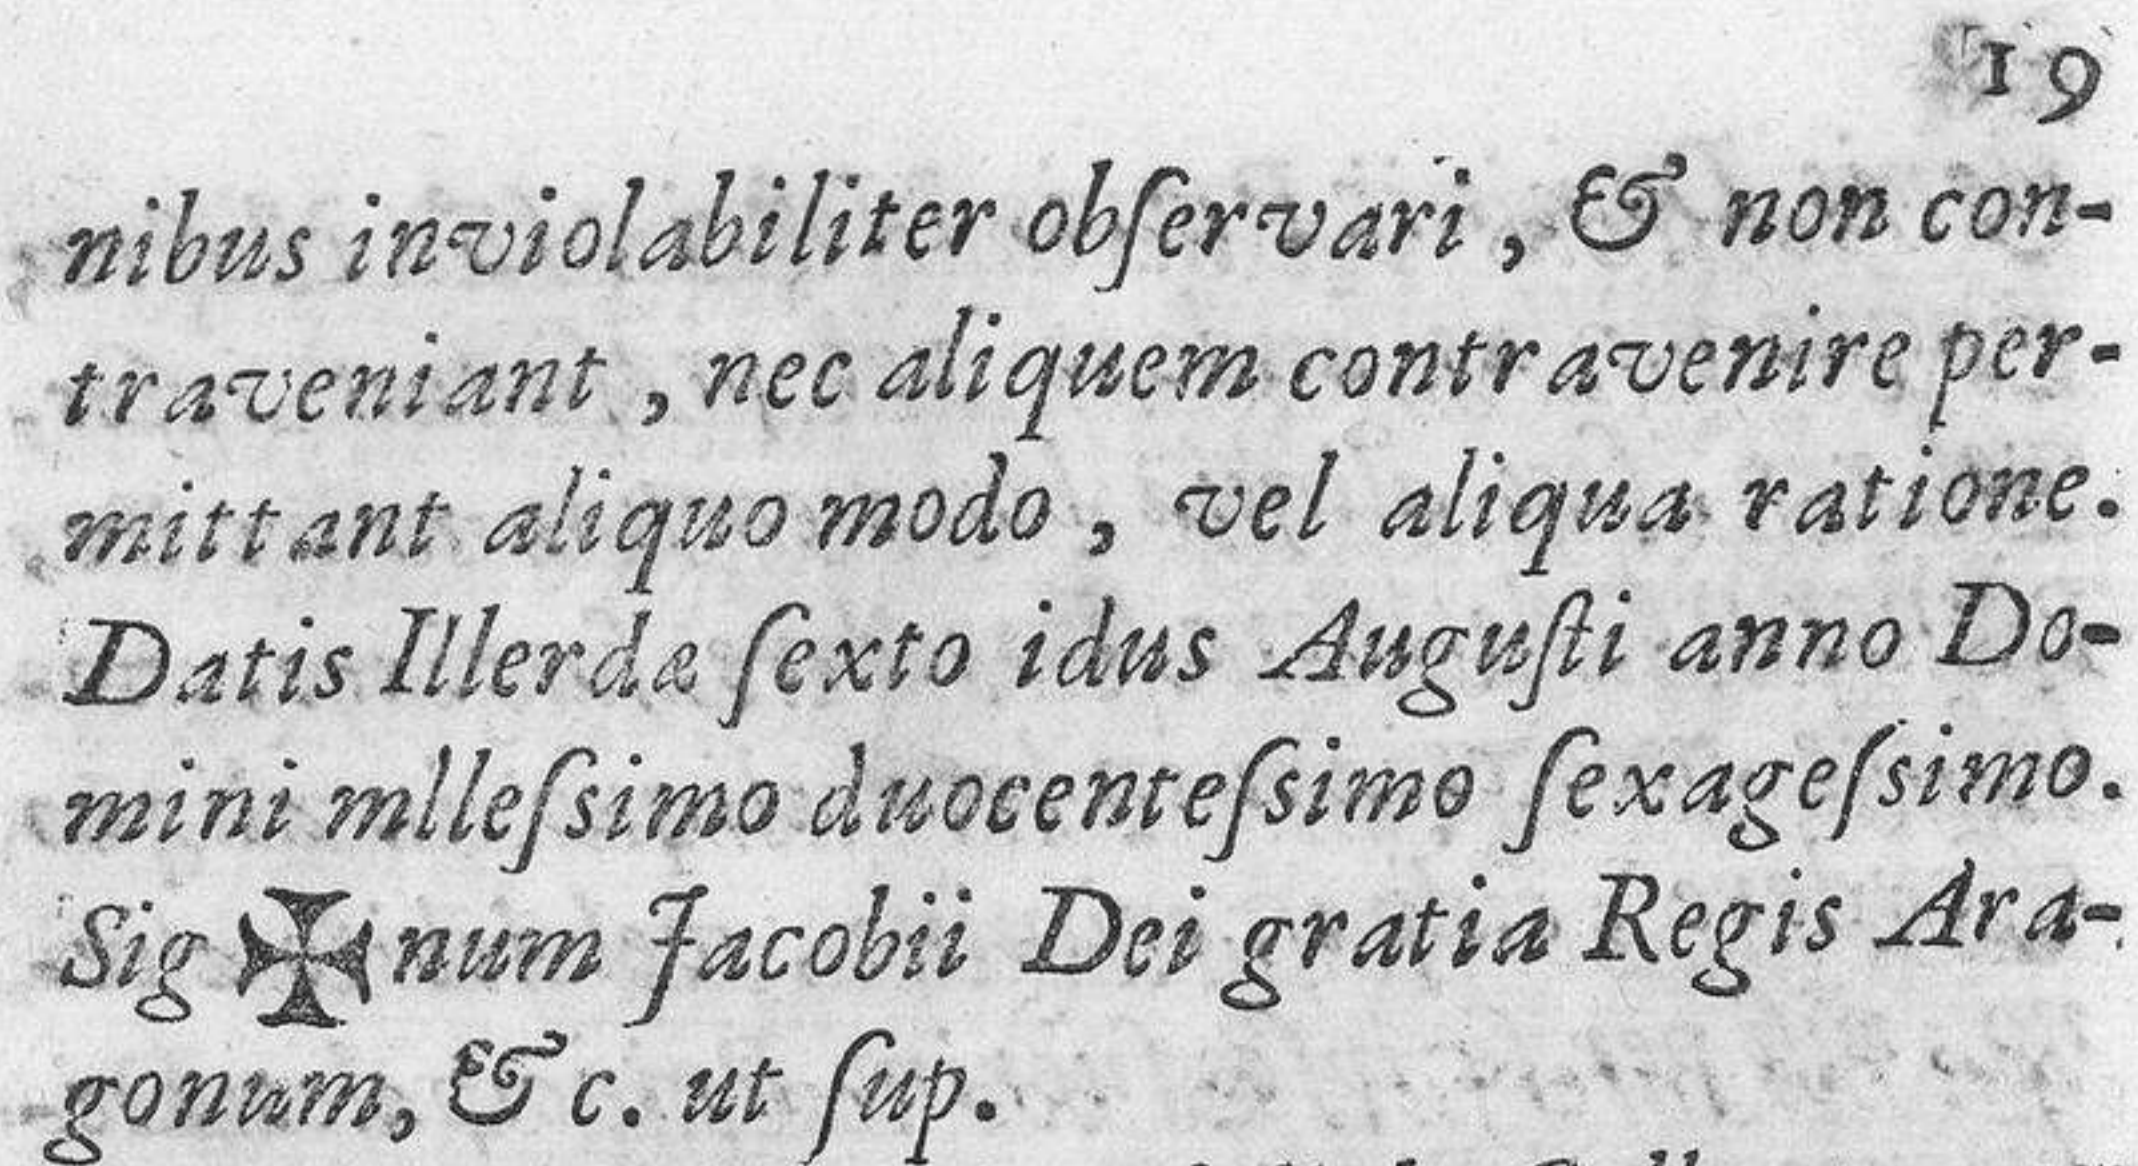 19
nibus inviolabiliter obſervari, & non con-
traveniant, nec aliquem contravenire per-
mittant aliquo modo, vel aliqua ratione.
Datis Illerdæ ſexto idus Auguſti anno Do-
mini mlleſsimo duocenteſsimo ſexageſsimo.
Sig ✠ num Jacobii Dei gratia Regis Ara-
gonum, &c. ut ſup.